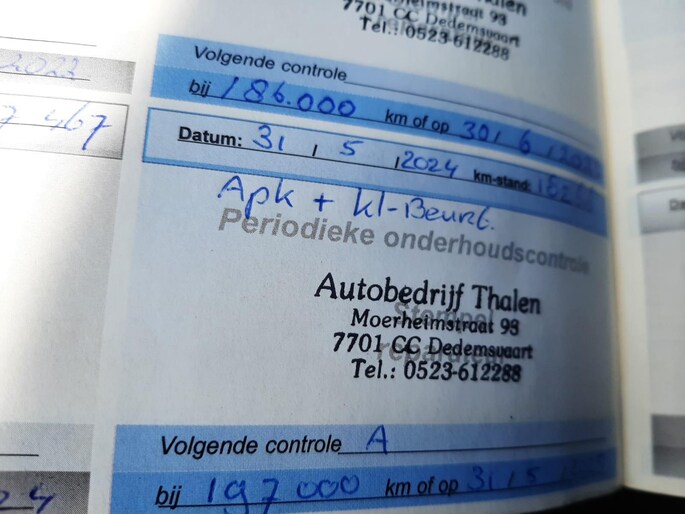 2023
7467
Moerheimstraat 98
7701 CC Dedemsvaart
Tel.: 0523-612288
Volgende controle
bij 186.000 km of op 30 / 6 /
Datum: 31 / 5 / 2024 km-stand:
Apk + kl-Beurt.
Periodieke onderhoudscontrole
Autobedrijf Thalen
Stempel
Moerheimstraat 98
7701 CC Dedemsvaart
Tel.: 0523-612288
Volgende controle A
bij 197000 km of op 31 / 5 /
24